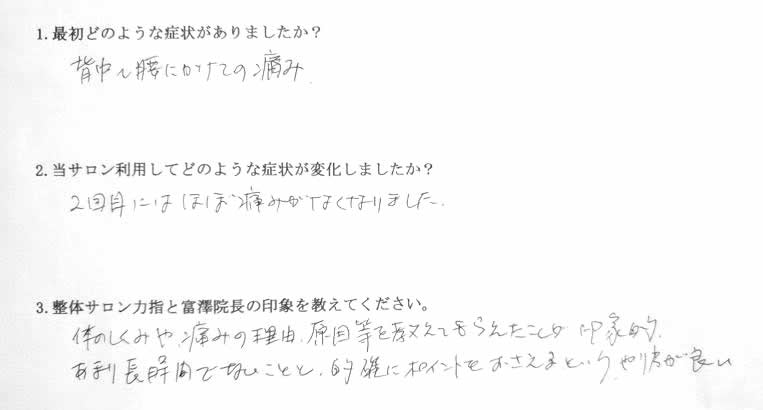 1.最初どのような症状がありましたか？
背中~腰にかけての痛み
2.当サロン利用してどのような症状が変化しましたか？
2回目にはほぼ痛みがなくなりました.
3.整体サロン力指と富澤院長の印象を教えてください。
体のしくみや、痛みの理由、原因等を教えてもらえたことが印象的.
あまり長時間でないことと、的確にポイントをおさえるというやり方が良い